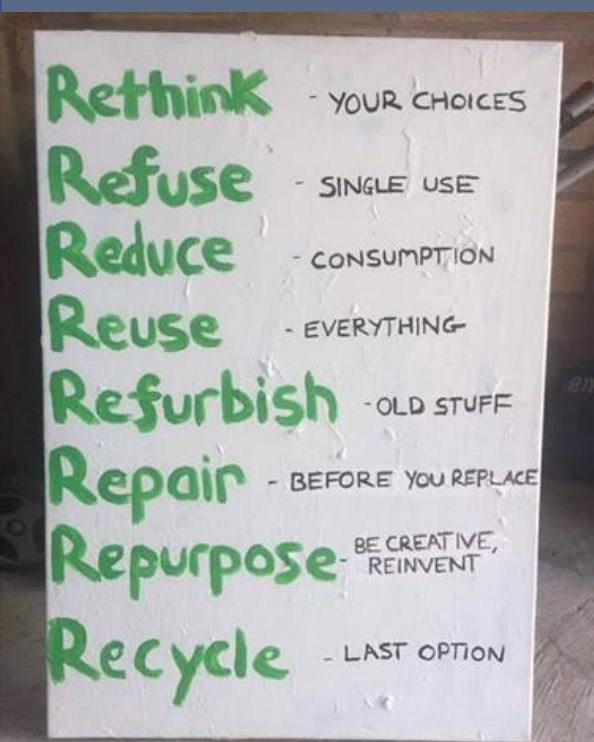 Rethink - YOUR CHOICES
Refuse - SINGLE USE
Reduce - CONSUMPTION
Reuse - EVERYTHING
Refurbish - OLD STUFF
Repair - BEFORE YOU REPLACE
Repurpose - BE CREATIVE,
REINVENT
Recycle - LAST OPTION